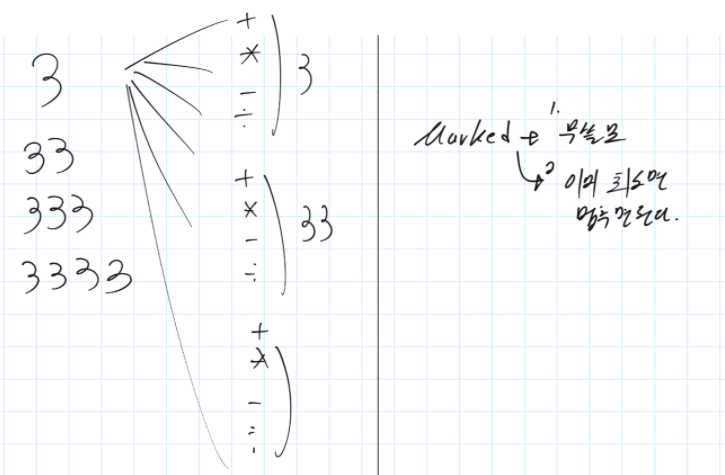 3
33
333
3333
+
*
-
÷
3
+
*
-
÷
33
+
*
-
÷
Marked
1. 무쓸모
2 이미 최소면
멈추면된다.